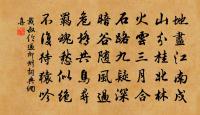 地盡江南戍
山分桂北林
火雲三月合
石路九疑深
暗谷隨風過
危橋共鳥尋
羈魂愁似絕
不復待猿吟
戴叔伦過郴州詞典網